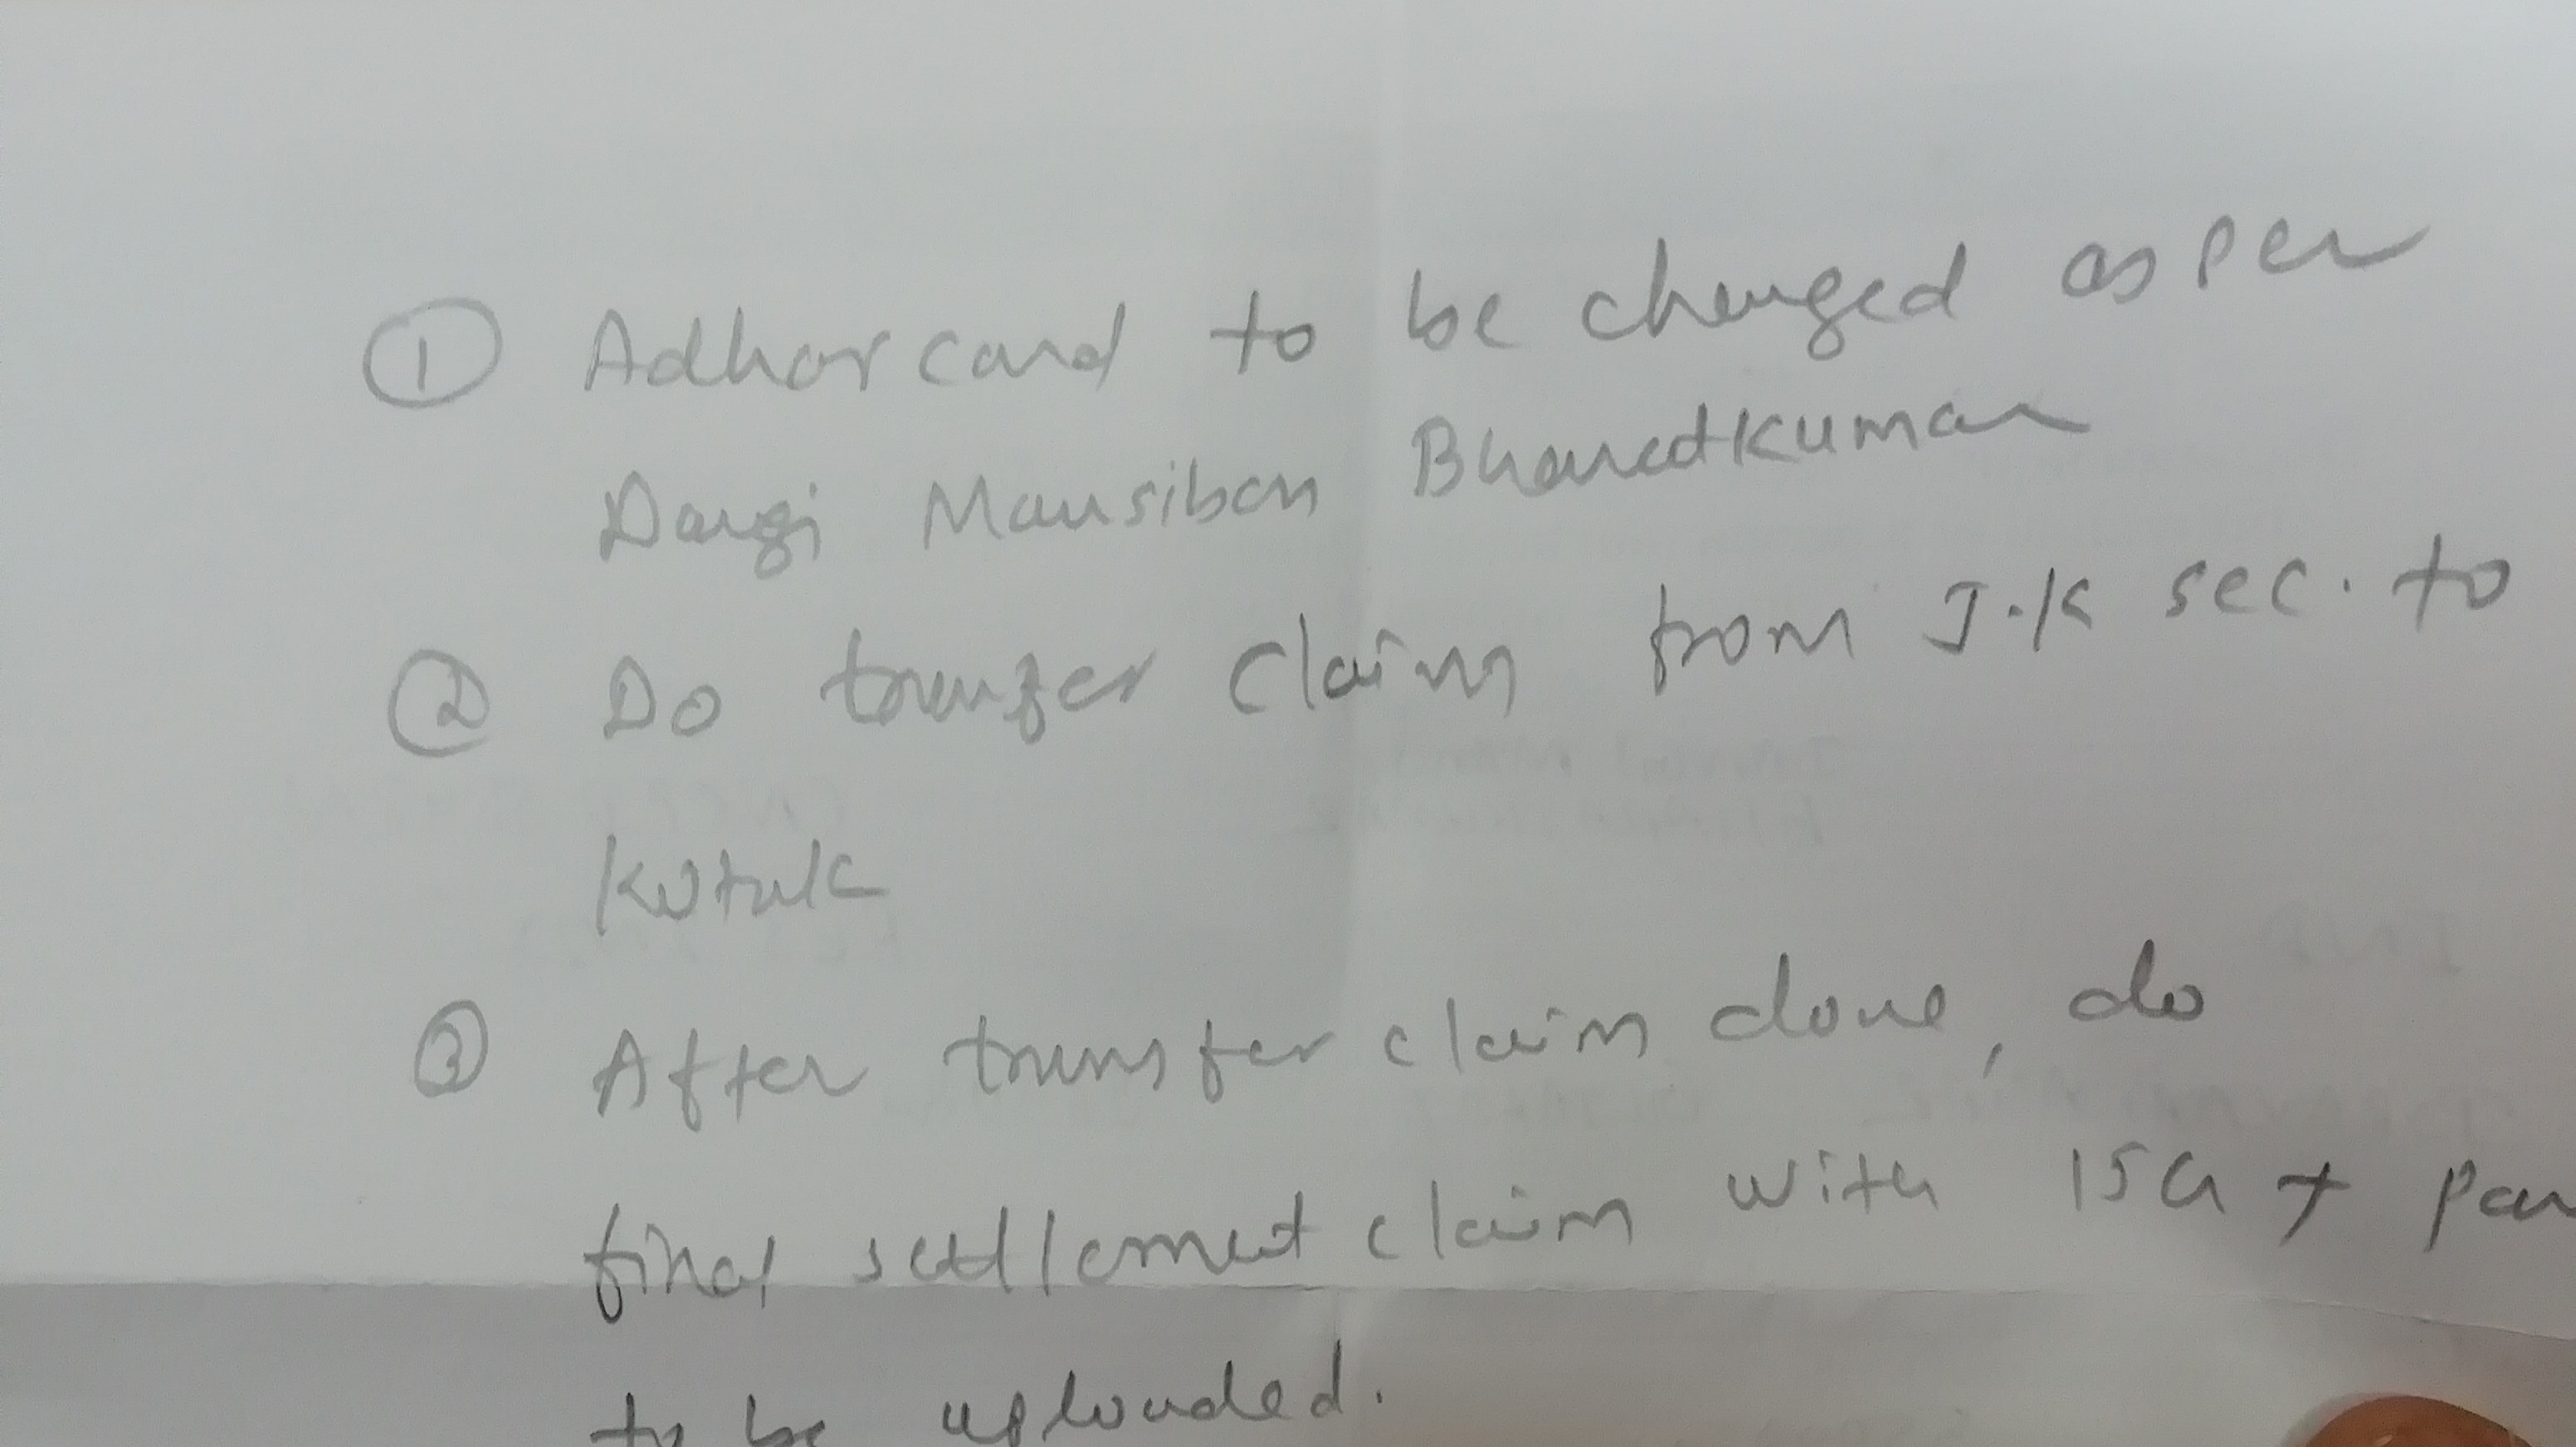 ① Adhar card to be changed as per
Dangi Mansiben Bharatkumar
② Do transfer claim from J.K sec. to
Kotak
③ After transfer claim done, do
final settlement claim with 15G + pan
to be uploaded.